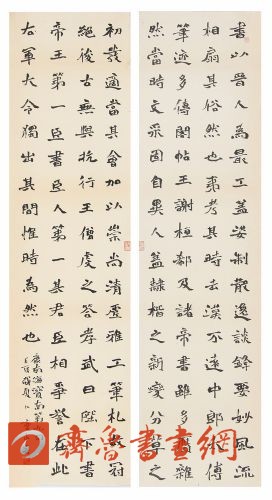 書以晉人為最工蓋姿制散逸談鋒要妙風流
相扇其俗然也夷考其時去漢不遠中郎太傅
筆迹多傳閣帖王謝桓郗及諸帝書雖多贗雜
然當時文采固自異人蓋隸楷之新變分草之
初發適當其會加以崇尚清虛雅工筆札故冠
絕後古無與抗行王僧虔之答孝武曰陛下書
帝王第一臣書臣人第一其君臣相爭譽在此
右軍大令獨出其間惟時為然也
康南海
齊魯書畫